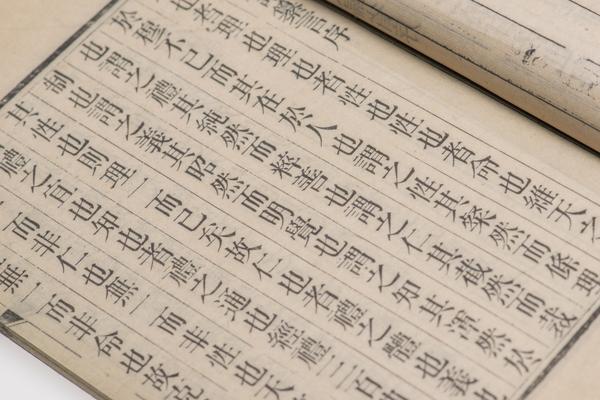 言序
也者理也理也者性也性也者命也維天之
於穆不已而其在於人也謂之性其粲然而條理
也謂之禮其純然而粹善也謂之仁其截然而裁
制也謂之義其昭然而明覺也謂之知其渾然於
其性也則理一而已矣故仁也者禮之體也義也
禮之宜也知也者禮之通也經禮三百
而非仁也無一而非性也天
無一而非命也故克